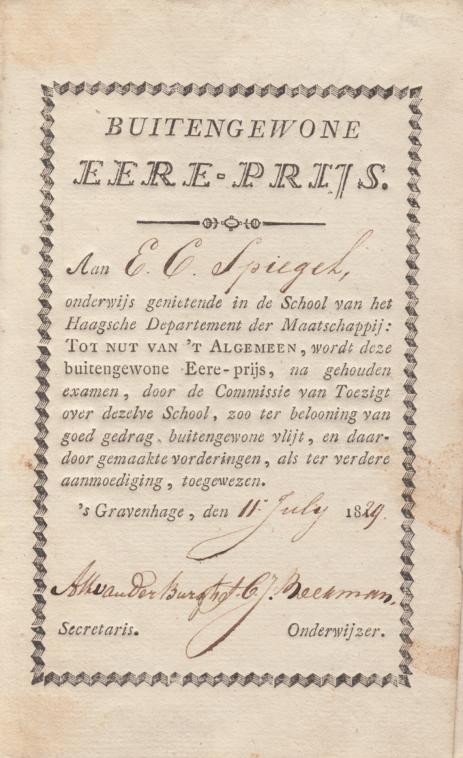 BUITENGEWONE
EERE-PRIJS.
Aan E. C. Spiegel,
onderwijs genietende in de School van het
Haagsche Departement der Maatschappij:
TOT NUT VAN 'T ALGEMEEN, wordt deze
buitengewone Eere-prijs, na gehouden
examen, door de Commissie van Toezigt
over dezelve School, zoo ter belooning van
goed gedrag, buitengewone vlijt, en daar-
door gemaakte vorderingen, als ter verdere
aanmoediging, toegewezen.
's Gravenhage, den 11 July 1829.
van der Burgh C. J. Beekman.
Secretaris. Onderwijzer.